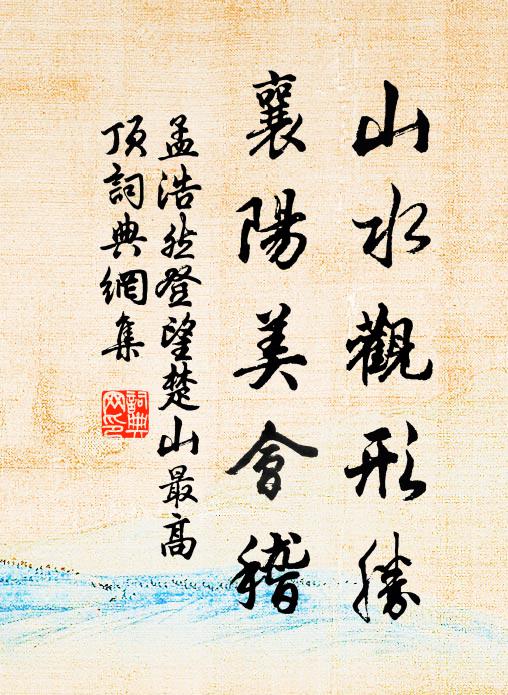 山水觀形勝
襄陽美會稽
孟浩然登望楚山最高
頂詞典網集
詞典
网印